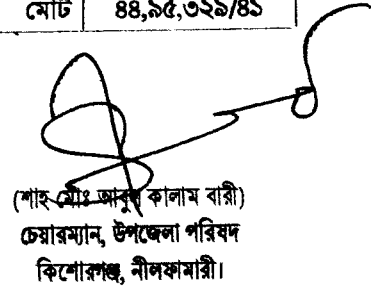 মোট ৪৪,৯৫,৩২৯/৪১
(শাহ মোঃ আবুল কালাম বারী)
চেয়ারম্যান, উপজেলা পরিষদ
কিশোরগঞ্জ, নীলফামারী।